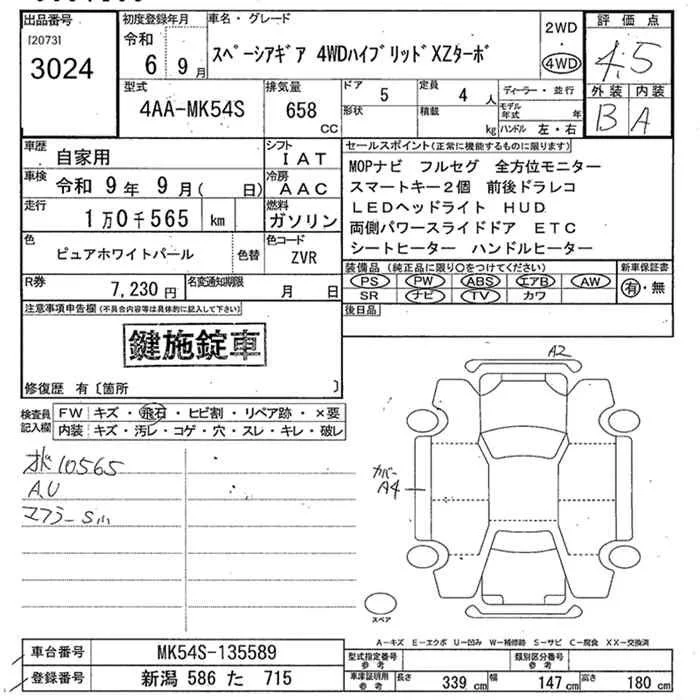 出品番号
[2073]
3024
初度登録年月
令和
6 9月
車名・グレード
スペーシアギア 4WDハイブリッドXZターボ
2WD
・
4WD
評価点
4.5
外装 内装
B A
型式
4AA-MK54S
排気量
658
CC
ドア
5
形状
定員
4 人
積載
kg
ディーラー・並行
モデル年式 年式
ハンドル 左・右
車歴
自家用
シフト
IAT
車検
令和 9年 9月( 日)
冷房
AAC
走行
1万0千565 km
燃料
ガソリン
色
ピュアホワイトパール
色替
色コード
ZVR
R券
7,230円
名変通知期限
月 日
セールスポイント(正常に機能するものに限ります)
MOPナビ フルセグ 全方位モニター
スマートキー2個 前後ドラレコ
LEDヘッドライト HUD
両側パワースライドドア ETC
シートヒーター ハンドルヒーター
装備品(純正品に限り○をつけてください)
PS PW ABS エアB AW
SR ナビ TV カワ
新車保証書
有・無
後日品
注意事項申告欄(不具合内容等は具体的に記入して下さい)
鍵施錠車
修復歴 有〔箇所 〕
検査員
記入欄
FW キズ・飛石・ヒビ割・リペア跡・×要
内装 キズ・汚レ・コゲ・穴・スレ・キレ・破レ
10565
A,U
マフラーS小
A2
カバー
A4
スペア
A-キズ E-エクボ U-凹み W-補修跡 S-サビ C-腐食 XX-交換済
車台番号
MK54S-135589
登録番号
新潟 586 た 715
型式指定番号
参考
類別区分番号
参考
車庫証明用
参考
長さ 339 cm
幅 147 cm
高さ 180 cm